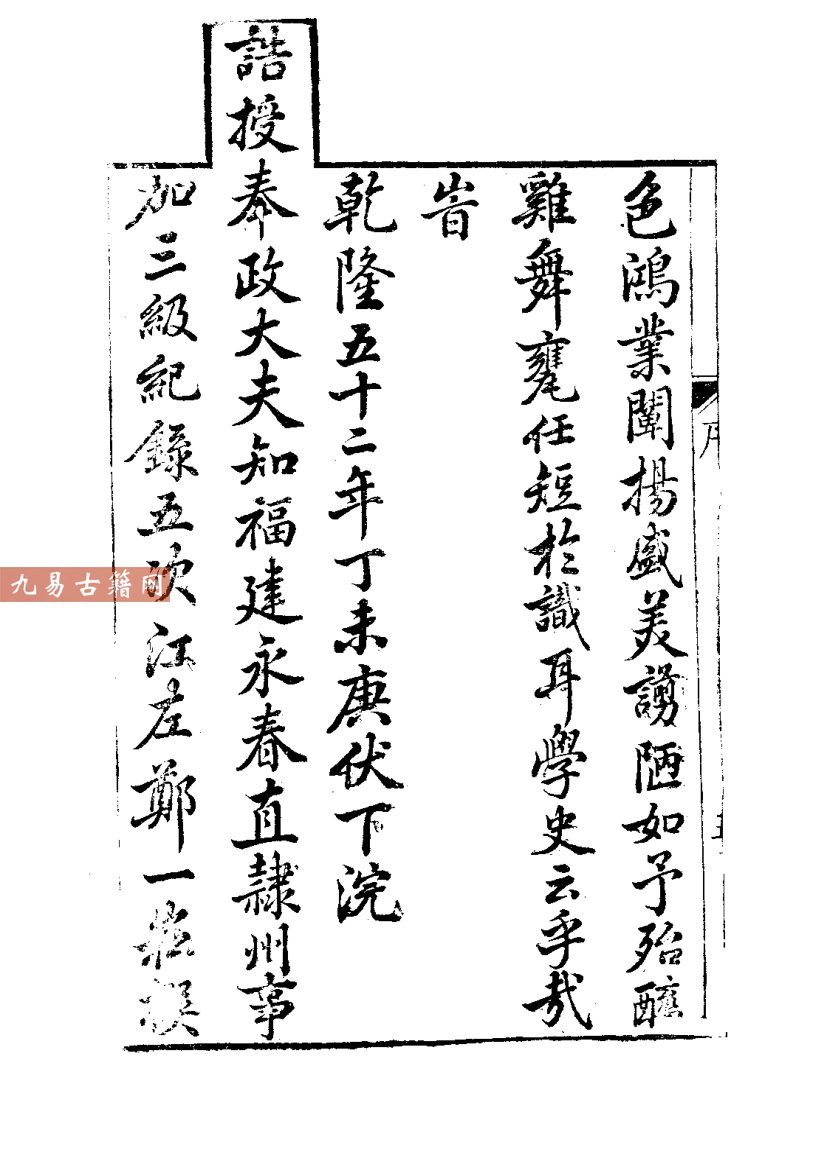 色鴻業闡揚盛美謭陋如予殆醯
雞舞甕任短於識耳學史云乎哉
旹
乾隆五十二年丁未庚伏下浣
誥授奉政大夫知福建永春直隸州事
加三級紀錄五次江左鄭一崧撰
九易古籍网